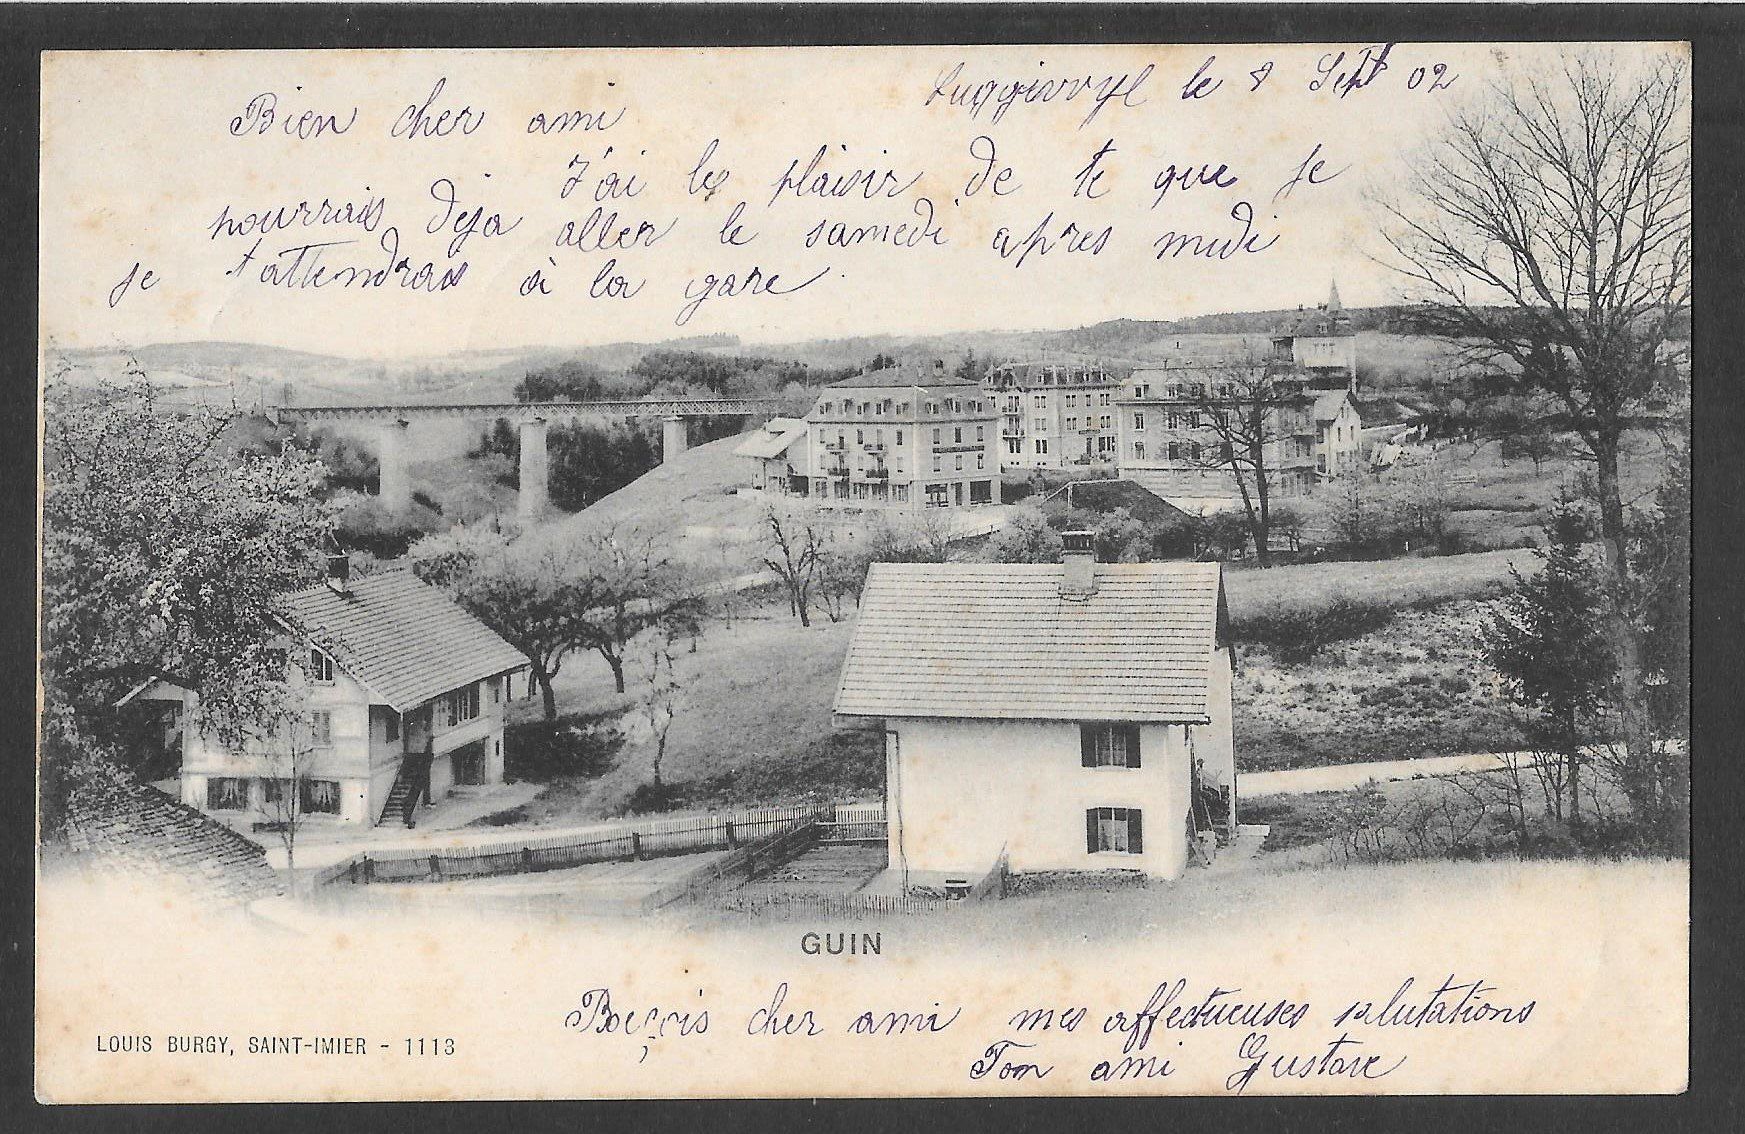 le 8 Sept 02
Bien cher ami
J'ai le plaisir de te que je
pourrais deja aller le samedi apres midi
je t'attendras à la gare
GUIN
Reçois cher ami mes affectueuses salutations
Ton ami Gustave
LOUIS BURGY, SAINT-IMIER - 1113